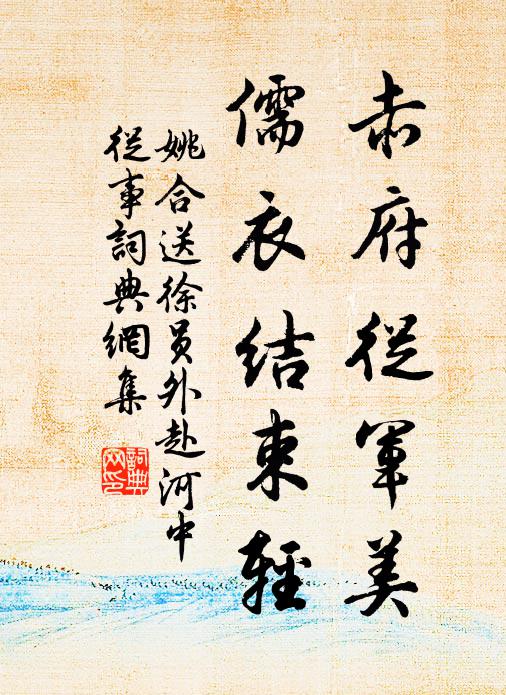 赤府従軍美
儒衣结束輕
姚合送徐員外赴河中
從事詞典網集
詞典网印